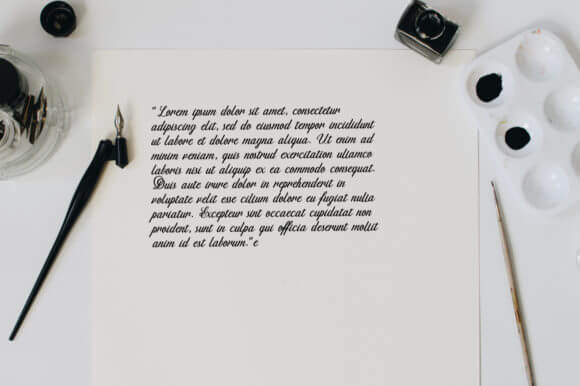 "Lorem ipsum dolor sit amet, consectetur
adipiscing elit, sed do eiusmod tempor incididunt
ut labore et dolore magna aliqua. Ut enim ad
minim veniam, quis nostrud exercitation ullamco
laboris nisi ut aliquip ex ea commodo consequat.
Duis aute irure dolor in reprehenderit in
voluptate velit esse cillum dolore eu fugiat nulla
pariatur. Excepteur sint occaecat cupidatat non
proident, sunt in culpa qui officia deserunt mollit
anim id est laborum."e